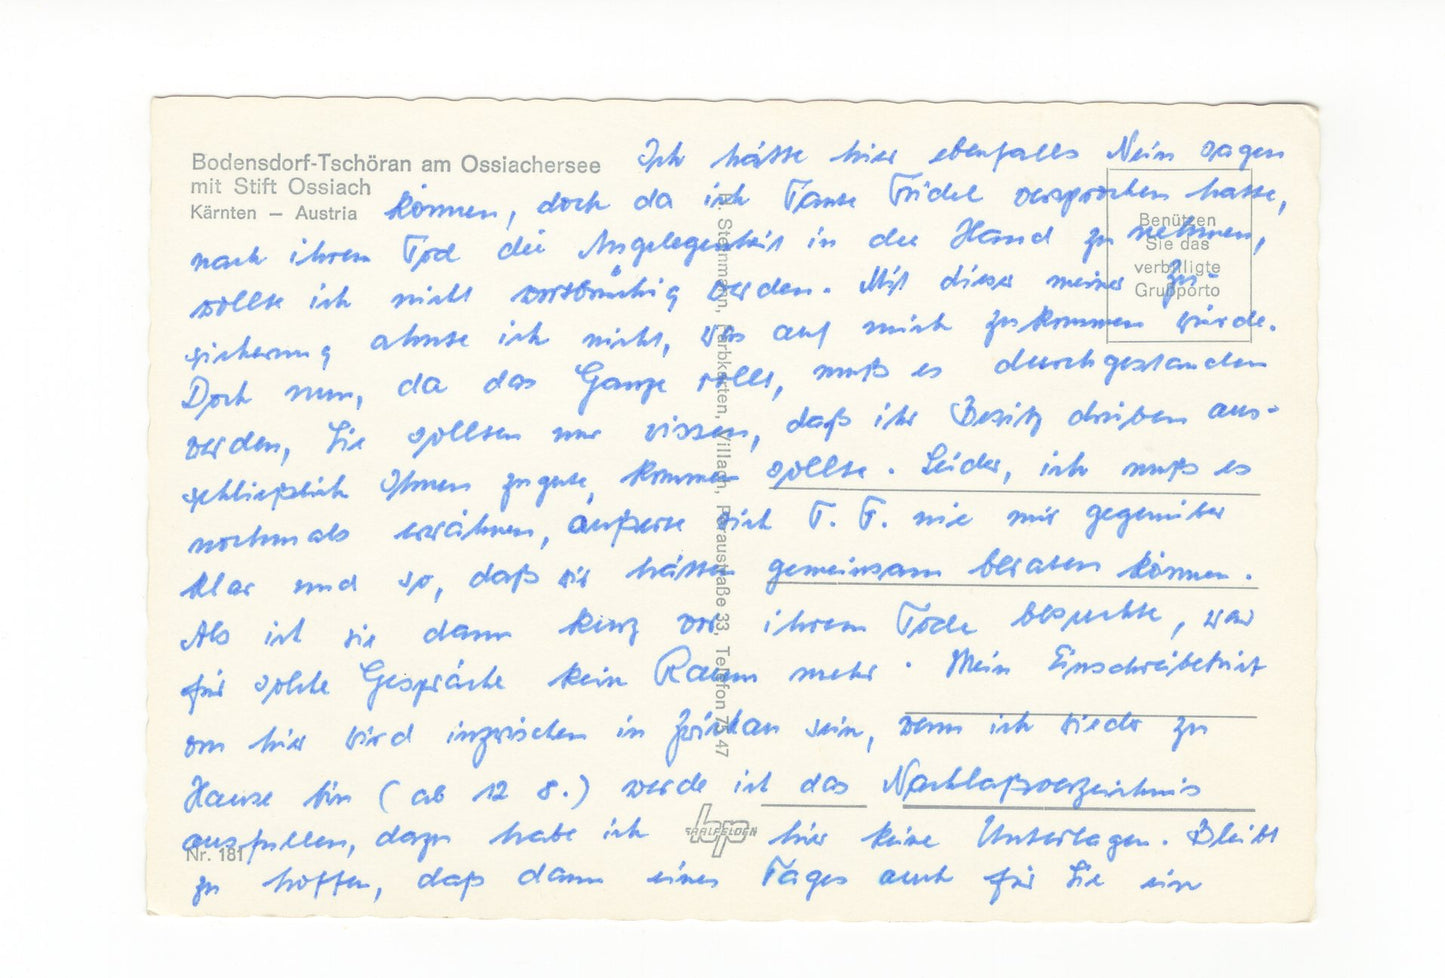 Bodensdorf-Tschöran am Ossiachersee
mit Stift Ossiach
Kärnten – Austria
Ich hätte hier ebenfalls Nein sagen
können, doch da ich Tante Friedel versprochen hatte,
nach ihrem Tod die Angelegenheit in die Hand zu nehmen,
wollte ich nicht wortbrüchig werden. Mit dieser meiner Zu-
sicherung ahnte ich nicht, was auf mich zukommen würde.
Doch nun, da das Ganze rollt, muß es durchgestanden
werden, Sie sollten nur wissen, daß ihr Besitz drüben aus-
schließlich Ihnen zugute kommen sollte. Leider, ich muß es
nochmals erwähnen, äußerte sich T. F. nie mir gegenüber
klar und so, daß wir hätten gemeinsam beraten können.
Als ich sie dann kurz vor ihrem Tode besuchte, war
für solche Gespräche kein Raum mehr. Mein Einschreibebrief
von hier wird inzwischen in sein, wenn ich wieder zu
Hause bin (ab 12 8.) werde ich das Nachlaßverzeichnis
ausfüllen, dazu habe ich hier keine Unterlagen. Bleibt
zu hoffen, daß dann eines Tages auch für Sie ein
Benützen
Sie das
verbilligte
Grußporto
Steinmann, Farbkarten, Villach, Peraustraße 33, Telefon 75 47
SAALFELDEN
Nr. 181